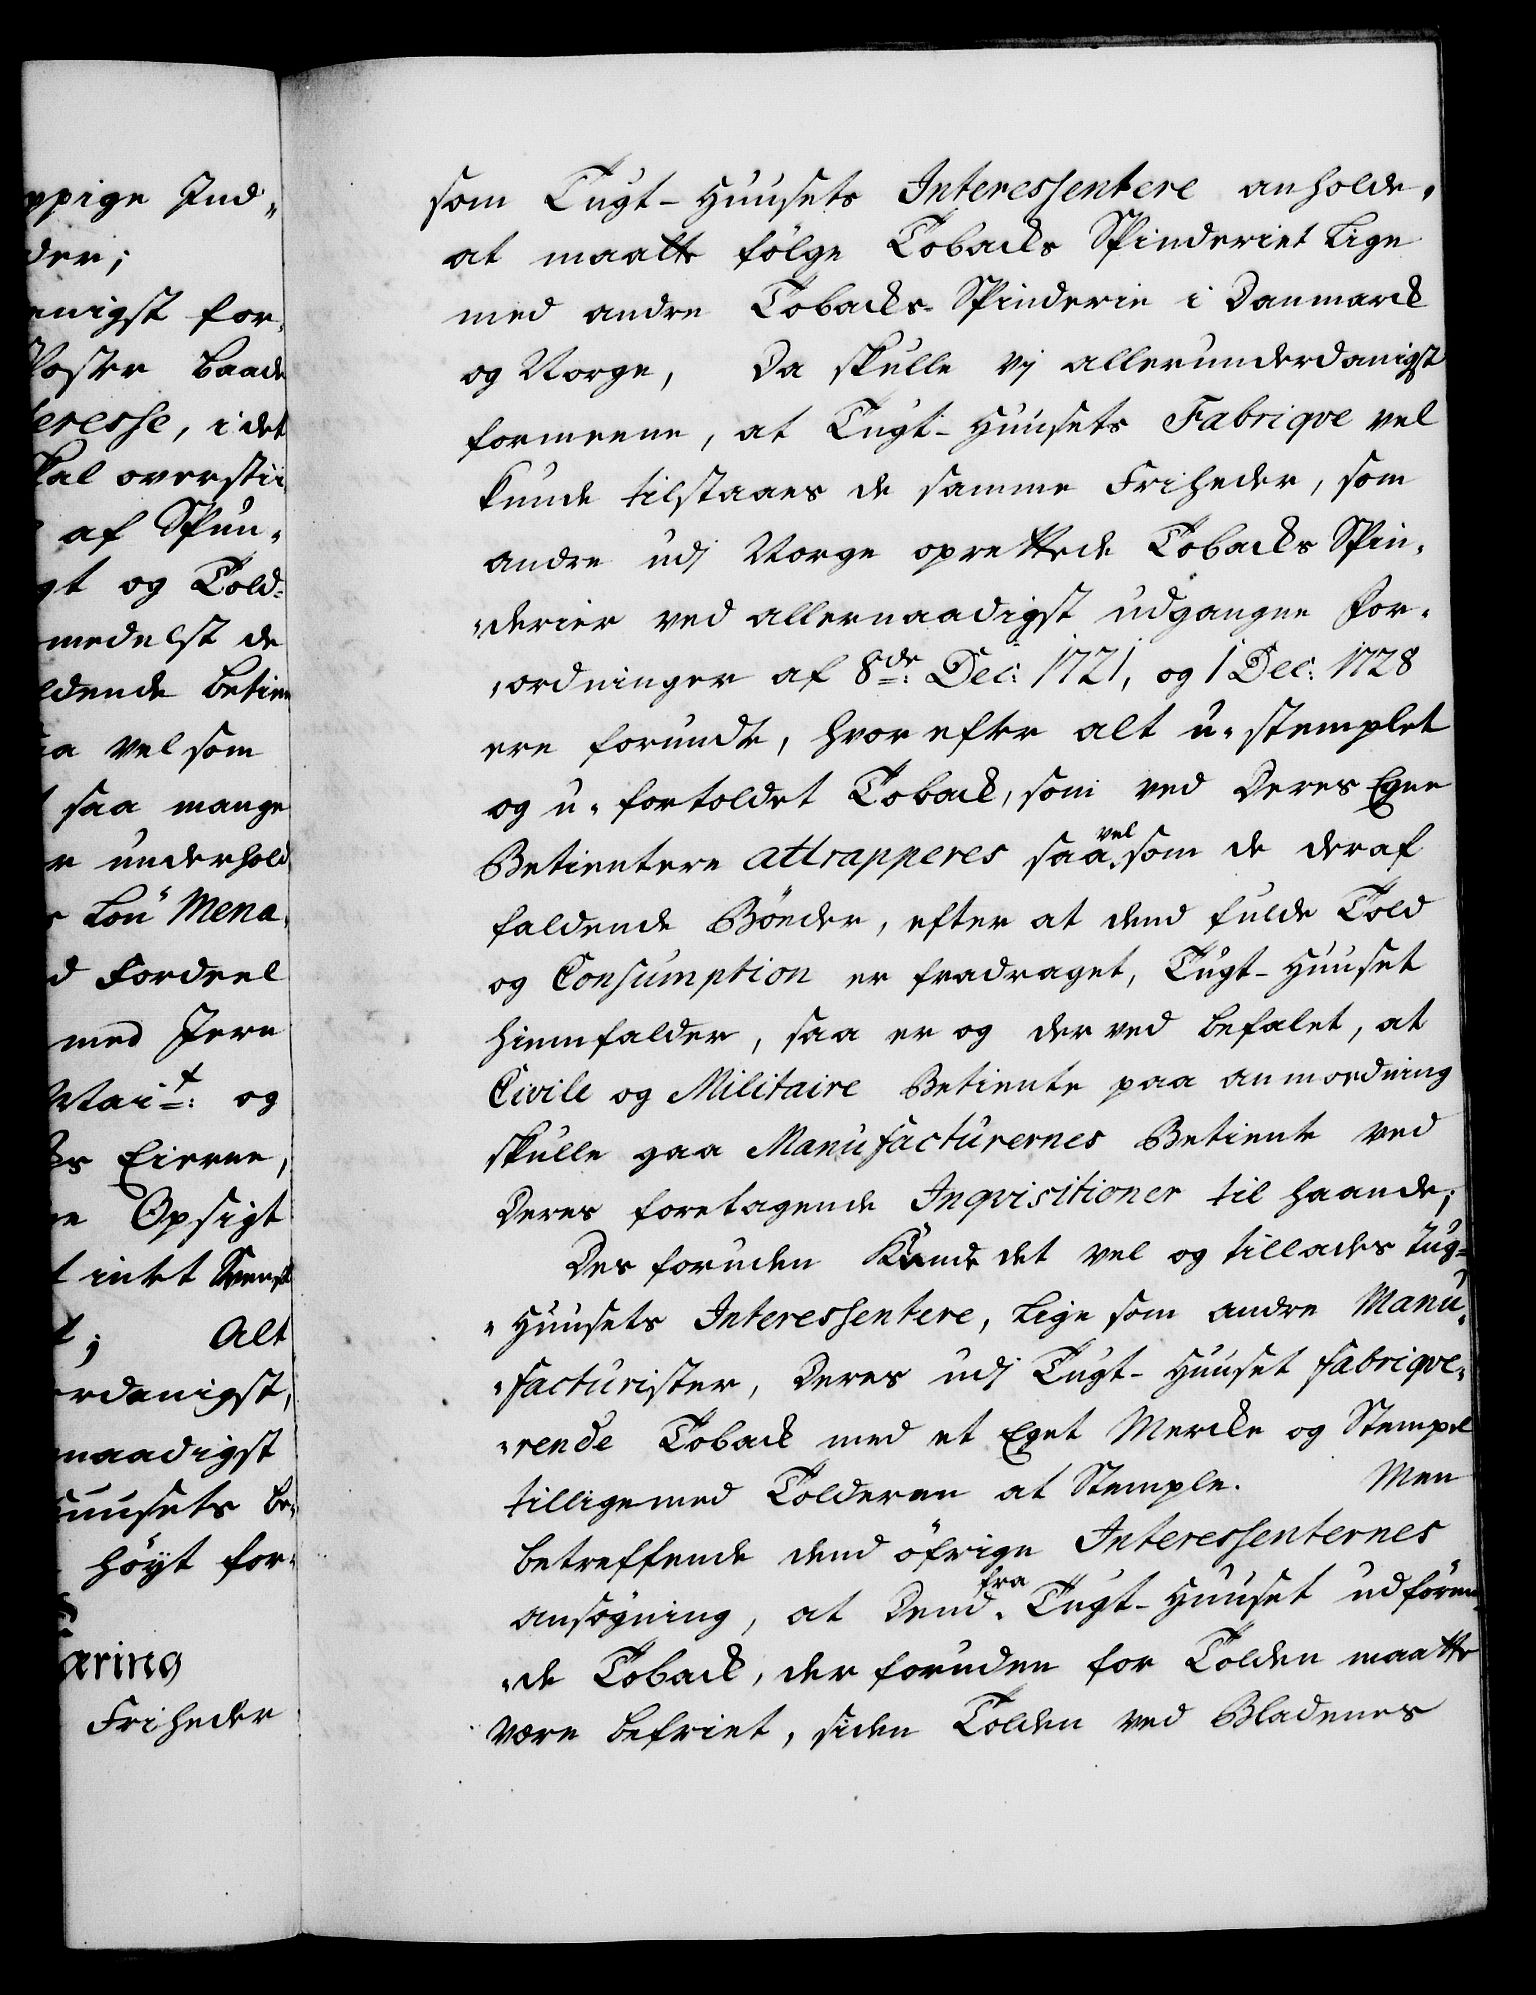 ppige Ind„
der;
enigst for„
Poster baade
teresse, i det
skal overstii
af Spun„
gt og Told„
medelst de
ldende betien
saa vel som
saa mange
r underhold
Lou Mena„
d Fordeel
med Jern
Mai:t og
Eierne,
Opsigt
t intet Svensk
t; Alt
rdanigst,
naadigst
huusets be„
høyt for„
æring
Friheder
som Tugt-Huusets Interessentere anholde,
at maatte følge Tobacks Spinderiet lige
med andre Tobacks-Spinderie i Danmarck
og Norge, Da skulle vj allerunderdanigst
formeene, at Tugt-Huusets Fabriqve vel
kunde tilstaaes de samme Friheder, som
andre udj Norge oprettede Tobacks Spin„
„derier ved allernaadigst udgangne For„
„ordninger af 8de: Dec: 1721, og 1 Dec: 1728
ere forundt, hvorefter alt u„stemplet
og u„fortoldet Toback, som ved Deres Egne
Betientere attrapperes saa vel som de deraf
faldende Bøeder, efter at dend fulde Told
og Consumption er fradraget, Tugt-Huuset
hiemfalder, saa er og derved befalet, at
Civile og Militaire Betiente paa anmodning
skulle gaa Manufacturernes Betiente ved
Deres foretagende Inqvisitioner til haande;
Des foruden Kunde det vel og tillades Tug„
„Huusets Interessentere, lige som andre Manu„
„facturister, Deres udj Tugt-Huuset fabriqve„
„rende Toback med et Eget Mercke og Stempel
tilligemed Tolderen at Stemple. Men
betreffende dend øfrige Interessenternes
ansøgning, at Dend fra Tugt-Huuset udføren„
„de Toback, der foruden for Tolden maatte
være befriet, siden Tolden ved Bladenes